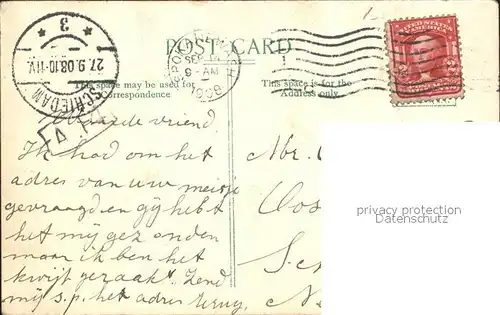 POST CARD
This space may be used for
Correspondence
This space is for the
Address only.
3
27.9.08.10-11V.
SCHIEDAM
SEP
9-AM
1908
UNITED STATES
OF AMERICA
Waarde vriend.
Ik had om het
adres van uw meisje
gevraagd en gij hebt
het mij gezonden
maar ik ben het
kwijt geraakt. Zend
mij s.p. het adres terug.
Mr.
Oos
privacy protection
Datenschutz